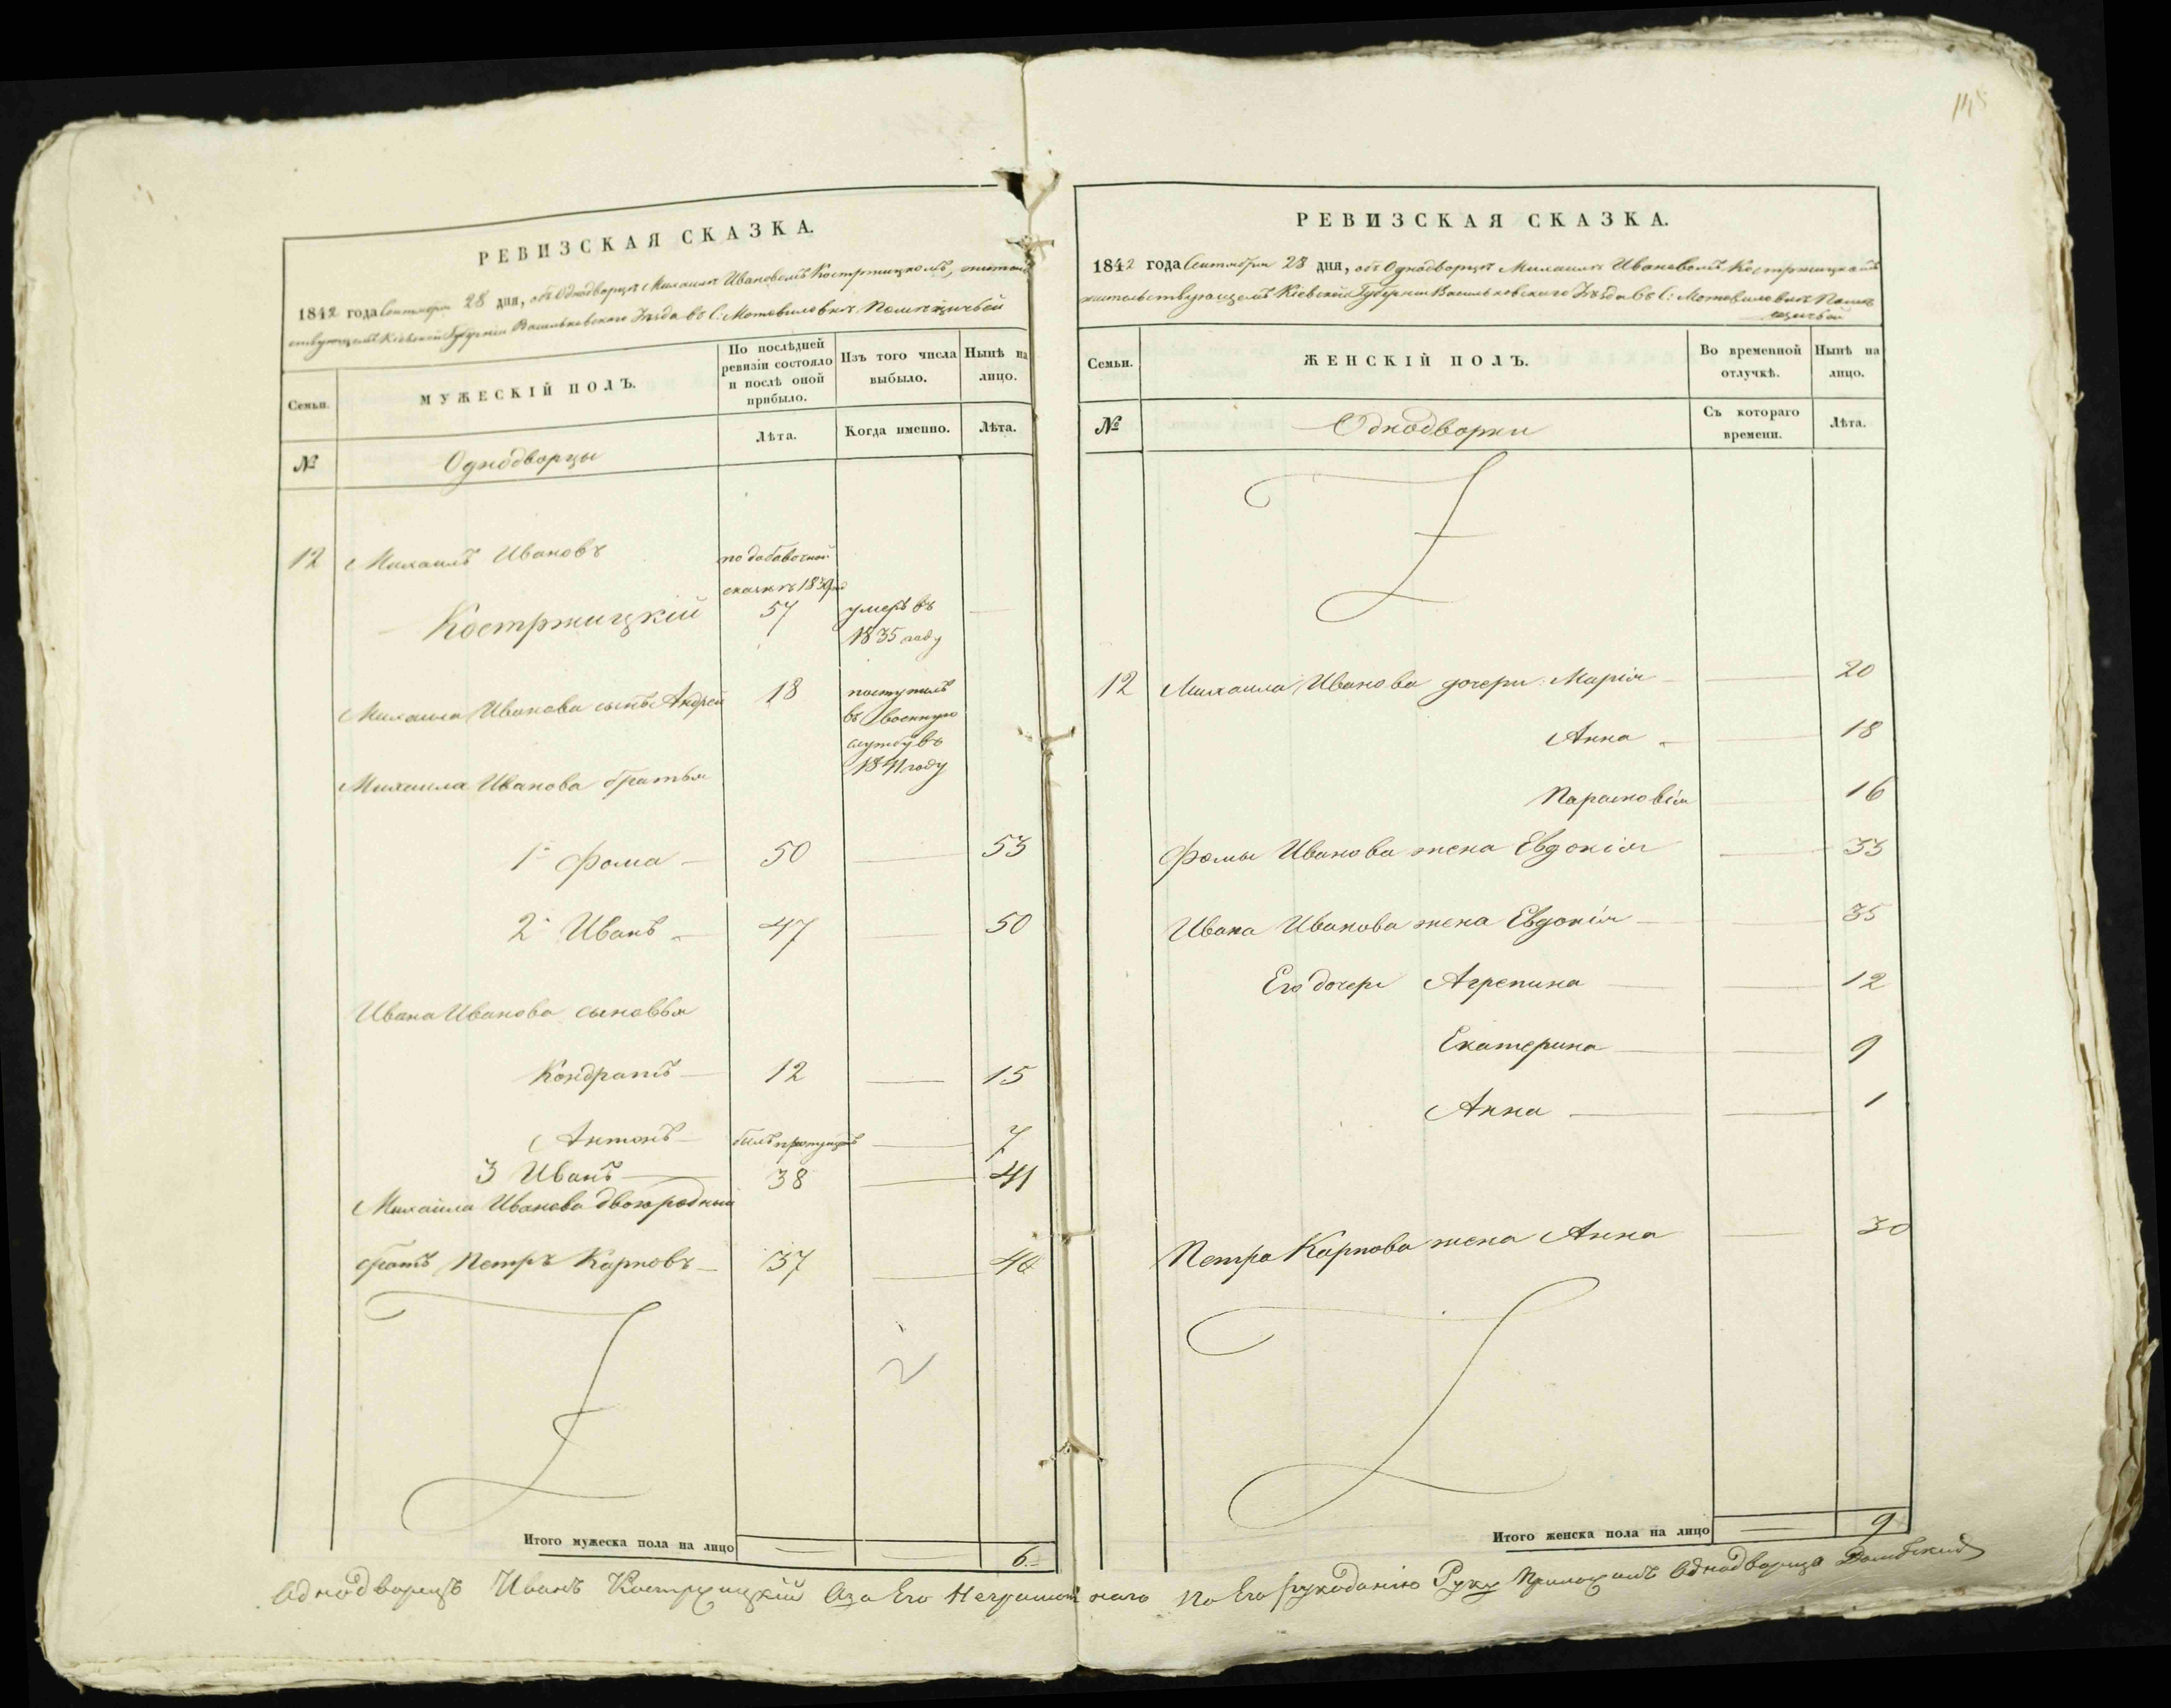 145
РЕВИЗСКАЯ СКАЗКА.
1842 года Сентября 28 дня, объ Однодворцѣ Михаилѣ Ивановомъ Костржицкомъ, житель
ствующемъ Кіевской Губерніи Васильковскаго Уѣзда въ С: Мотовиловкѣ Помѣщичьей
Семьи.
МУЖЕСКІЙ ПОЛЪ.
По послѣдней ревизіи состояло и послѣ оной прибыло.
Изъ того числа выбыло.
Нынѣ на лицо.
№
Однодворцы
Лѣта.
Когда именно.
Лѣта.
12 Михаилъ Ивановъ
по добавочной
сказкѣ 1839
Костржицкій 57 умеръ въ
1835 году
Михаила Иванова сынъ Андрей 18 поступилъ
въ военную
службу въ
1841 году
Михаила Иванова братья
1й Фома 50 53
2й Иванъ 47 50
Ивана Иванова сыновья
Кондратъ 12 15
Антонъ былъ пропущенъ 7
3 Иванъ 38 41
Михаила Иванова двоюродный
братъ Петръ Карповъ 37 40
Итого мужеска пола на лицо 6.
РЕВИЗСКАЯ СКАЗКА.
1842 года Сентября 28 дня, объ Однодворцѣ Михаилѣ Ивановомъ Костржицкомъ
жительствующемъ Кіевской Губерніи Васильковскаго Уѣзда въ С: Мотовиловкѣ Помѣ
щичьей
Семьи.
ЖЕНСКІЙ ПОЛЪ.
Во временной отлучкѣ.
Нынѣ на лицо.
№
Однодворки
Съ котораго времени.
Лѣта.
12 Михаила Иванова дочери: Марія 20
Анна 18
Парасковія 16
Фомы Иванова жена Евдокія 33
Ивана Иванова жена Евдокія 35
Его дочери Агрепина 12
Екатерина 9
Анна 1
Петра Карпова жена Анна 30
Итого женска пола на лицо 9
Однодворецъ Иванъ Костржицкій Аза Его Неграмотнаго По Его рукоданію Руку Приложилъ Однодворецъ